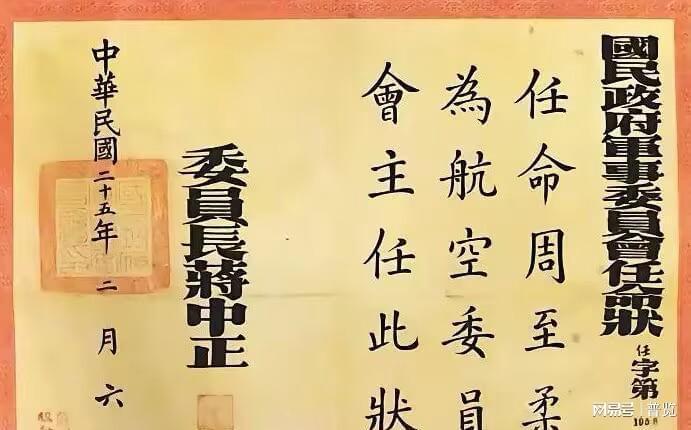 國民政府軍事委員會任命狀
任字第
任命周至柔
為航空委員
會主任此狀
委員長蔣中正
中華民國二十五年二月六
网易号 | 普览